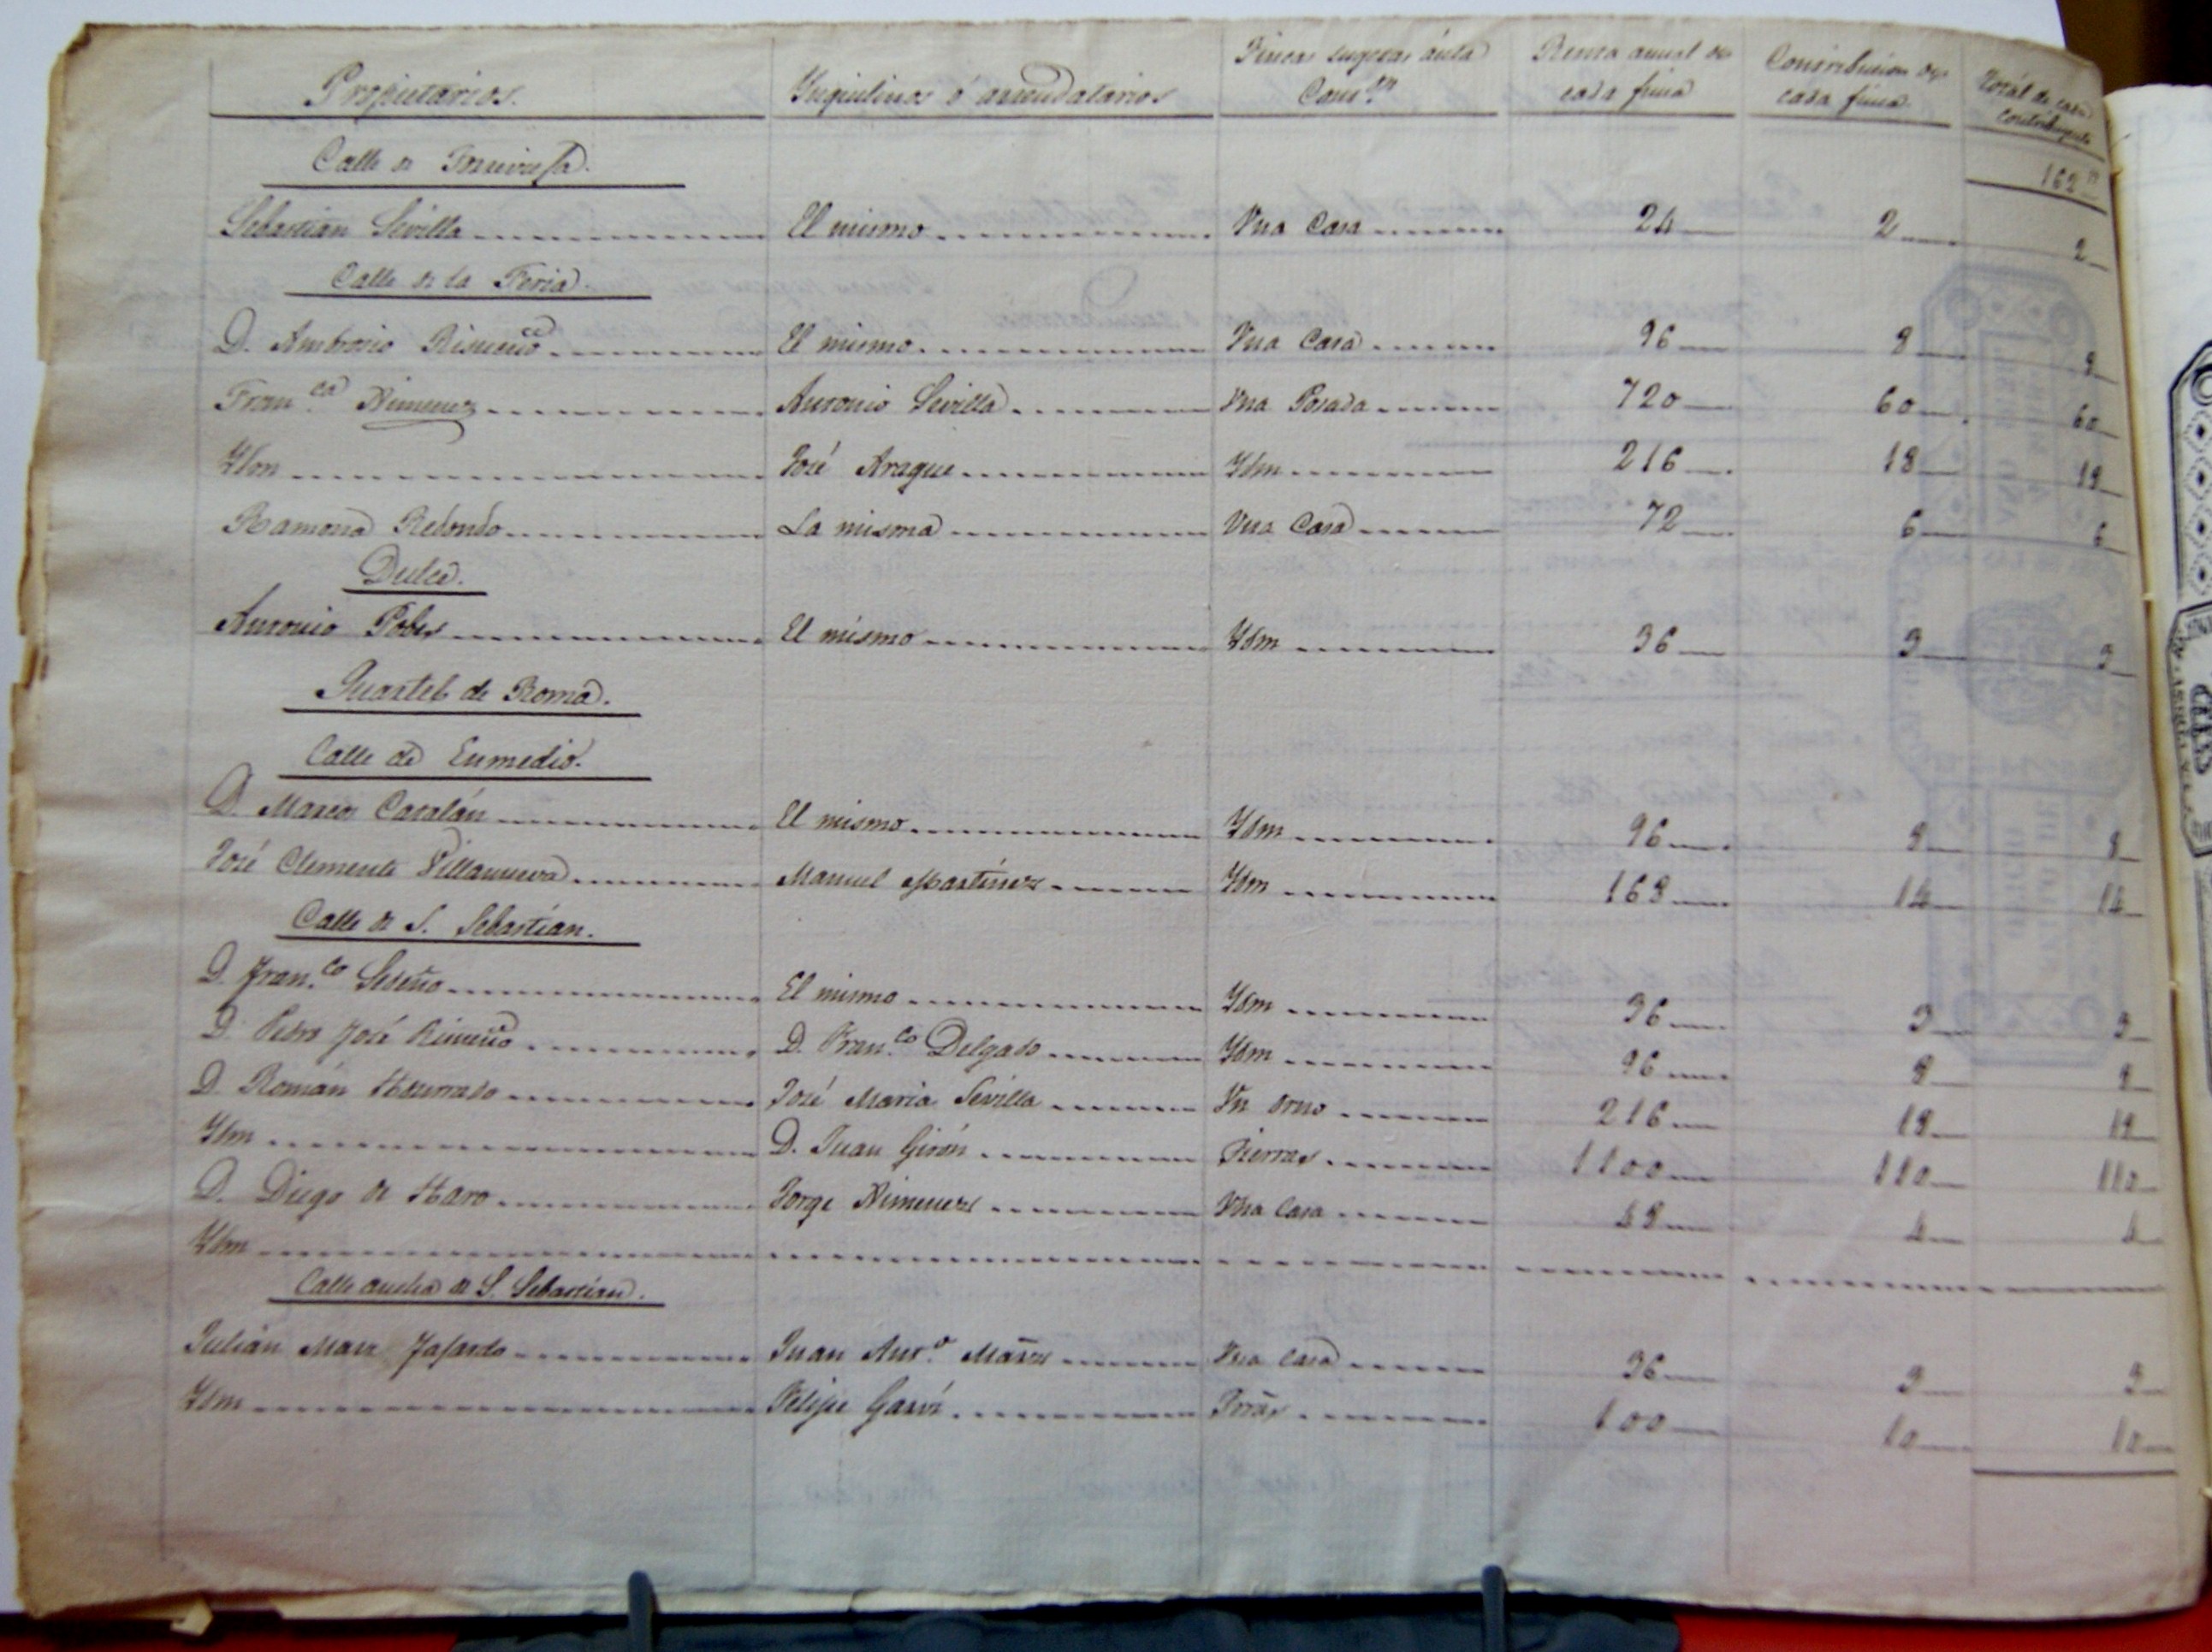 Propietarios. Ynquilinos ó arrendatarios Fincas sugetas á esta Cont.on Renta anual de cada finca Contribucion de cada finca. Total de cada contribuyente
Calle de 162
Sebastian Sevilla El mismo Vna Casa 24 2 2
Calle de la Feria.
D. Ambrosio Risueño El mismo Vna Casa 96 8 8
Fran.ca Ximenez Antonio Sevilla Vna Posada 720 60 60
Ydm José Araque Ydm 216 18 18
Ramona Redondo La misma Vna Casa 72 6 6
Dulce.
Antonio Pobes El mismo Ydm 36 3 3
Quartel de Roma.
Calle de Enmedio.
D. Marcos Catalán El mismo Ydm 96 8 8
José Clemente Villanueva Manuel Martinez Ydm 168 14 14
Calle de S. Sebastian.
D. Fran.co Sedeño El mismo Ydm 36 3 3
D. Pedro José Risueño D. Fran.co Delgado Ydm 96 8 8
D. Román José Maria Sevilla Vn orno 216 18 18
Ydm D. Juan Girón Tierras 1100 110 110
D. Diego de Haro Jorge Ximenez Vna Casa 48 4 4
Ydm
Calle ancha de S. Sebastian.
Julián Mañz Fajardo Juan Ant.o Mañz Vna Casa 36 3 3
Ydm Felipe Garví Trrãs 100 10 10